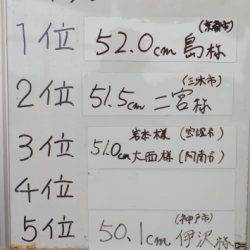 (京都市)
1位 52.0cm 島様
(三木市)
2位 51.5cm 二宮様
岩本様 (宝塚市)
3位 51.0cm 大西様 (阿南市)
4位
(神戸市)
5位 50.1cm 伊沢様